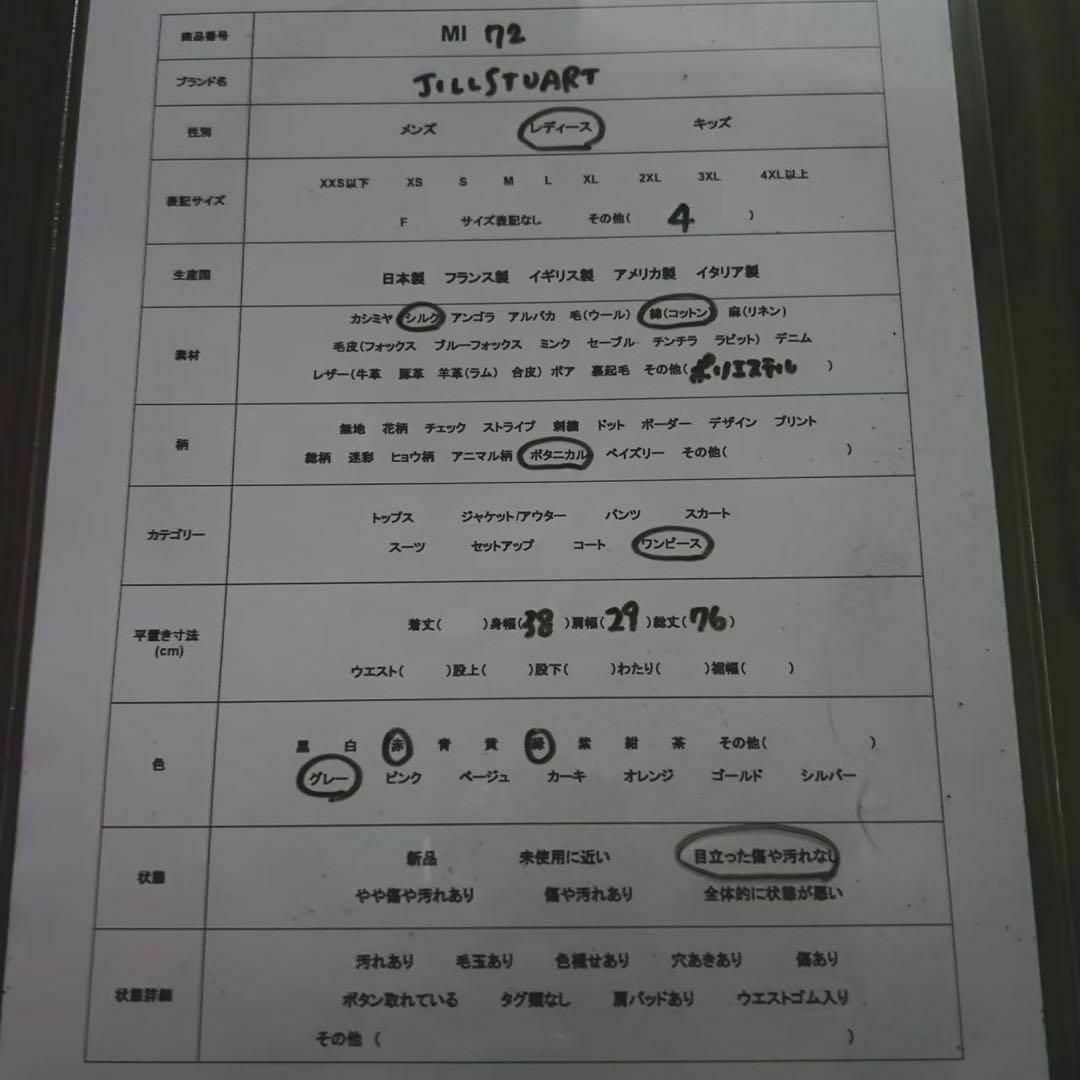 商品番号 MI 72
ブランド名 JILLSTUART
性別 メンズ レディース キッズ
表記サイズ
XXS以下 XS S M L XL 2XL 3XL 4XL以上
F サイズ表記なし その他( 4 )
生産国 日本製 フランス製 イギリス製 アメリカ製 イタリア製
素材
カシミヤ シルク アンゴラ アルパカ 毛(ウール) 綿(コットン) 麻(リネン)
毛皮(フォックス ブルーフォックス ミンク セーブル チンチラ ラビット) デニム
レザー(牛革 豚革 羊革(ラム) 合皮) ボア 裏起毛 その他(ポリエステル )
柄
無地 花柄 チェック ストライプ 刺繍 ドット ボーダー デザイン プリント
総柄 迷彩 ヒョウ柄 アニマル柄 ボタニカル ペイズリー その他( )
カテゴリー
トップス ジャケット/アウター パンツ スカート
スーツ セットアップ コート ワンピース
平置き寸法
(cm)
着丈( )身幅(38 )肩幅(29 )総丈(76 )
ウエスト( )股上( )股下( )わたり( )裾幅( )
色
黒 白 赤 青 黄 緑 紫 紺 茶 その他( )
グレー ピンク ベージュ カーキ オレンジ ゴールド シルバー
状態
新品 未使用に近い 目立った傷や汚れなし
やや傷や汚れあり 傷や汚れあり 全体的に状態が悪い
状態詳細
汚れあり 毛玉あり 色褪せあり 穴あきあり 傷あり
ボタン取れている タグ類なし 肩パッドあり ウエストゴム入り
その他 ( )